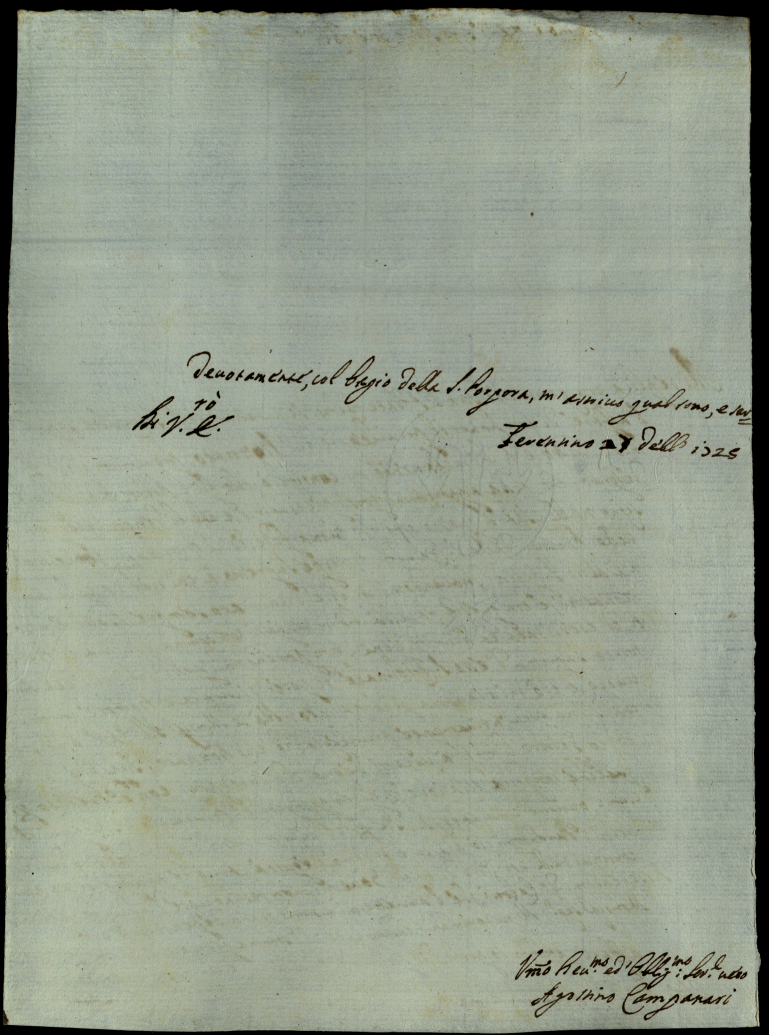 Devotamente, col bagio della S. Porpora, mi ascrivo qual sono, e sa=
rò
Di V. E.
Ferentino 27 dell 1725
Umo Deumo ed' Obblgmo Ser.
Agostino Campanari